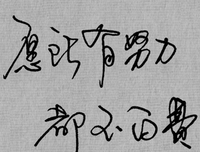 愿所有努力
都不白费